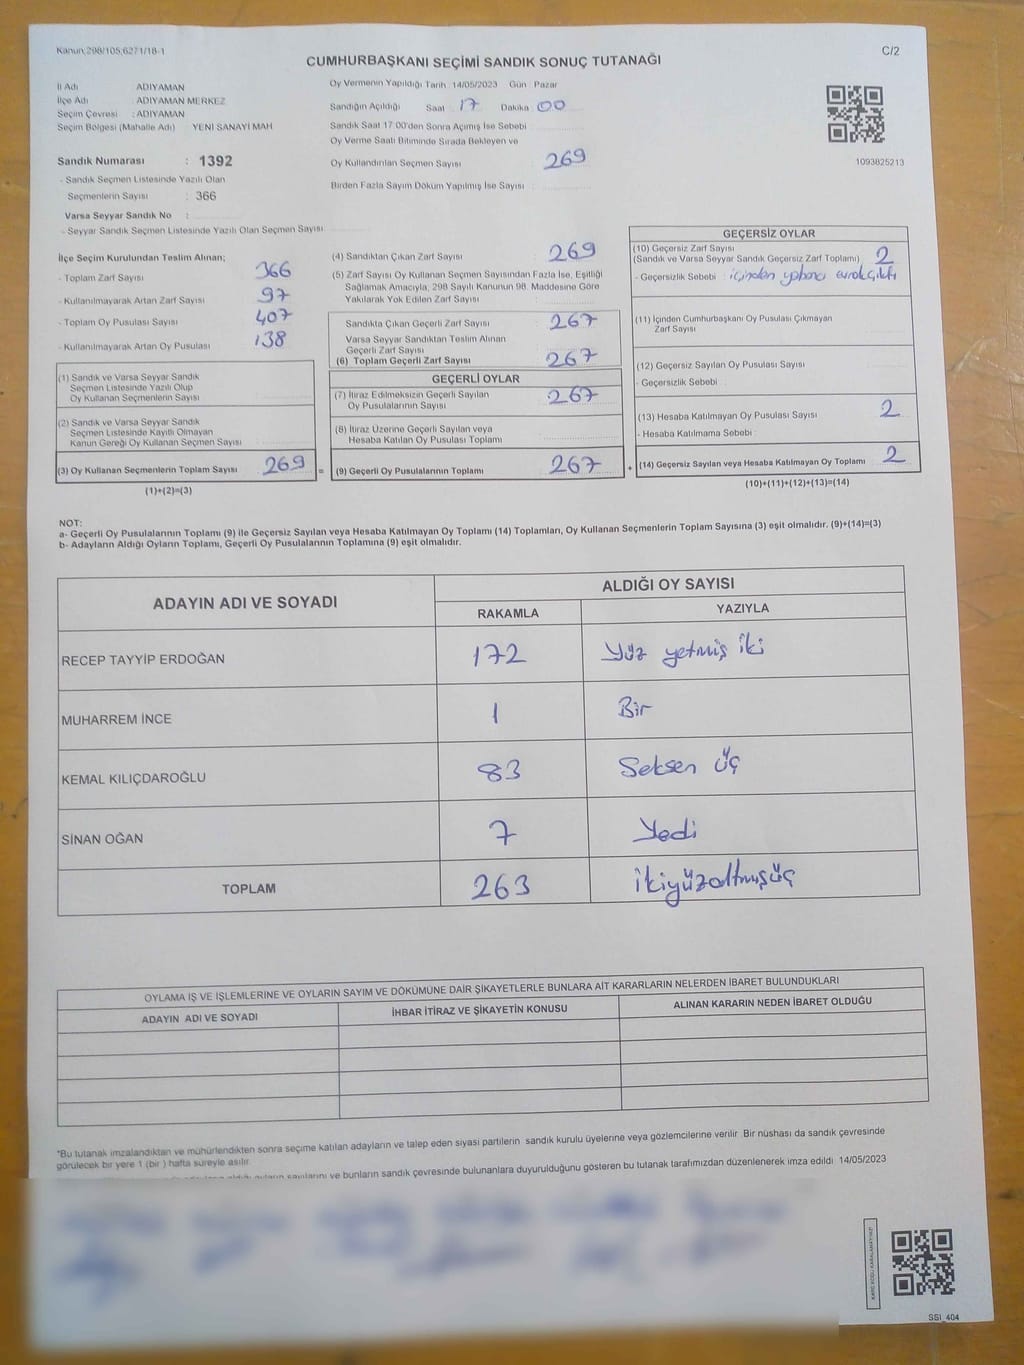 Kanun:298/105;6271/18-1
C/2
CUMHURBAŞKANI SEÇİMİ SANDIK SONUÇ TUTANAĞI
İl Adı ADIYAMAN
İlçe Adı ADIYAMAN MERKEZ
Seçim Çevresi : ADIYAMAN
Seçim Bölgesi (Mahalle Adı) YENİ SANAYİ MAH
Sandık Numarası : 1392
- Sandık Seçmen Listesinde Yazılı Olan
Seçmenlerin Sayısı : 366
Varsa Seyyar Sandık No :
- Seyyar Sandık Seçmen Listesinde Yazılı Olan Seçmen Sayısı
Oy Vermenin Yapıldığı Tarih 14/05/2023 Gün : Pazar
Sandığın Açıldığı Saat 17 Dakika 00
Sandık Saat 17:00'den Sonra Açımış İse Sebebi
Oy Verme Saati Bitiminde Sırada Bekleyen ve
Oy Kullandırılan Seçmen Sayısı 269
Birden Fazla Sayım Döküm Yapılmış İse Sayısı :
1093825213
İlçe Seçim Kurulundan Teslim Alınan;
- Toplam Zarf Sayısı 366
- Kullanılmayarak Artan Zarf Sayısı 97
- Toplam Oy Pusulası Sayısı 407
- Kullanılmayarak Artan Oy Pusulası 138
(1) Sandık ve Varsa Seyyar Sandık
Seçmen Listesinde Yazılı Olup
Oy Kullanan Seçmenlerin Sayısı
(2) Sandık ve Varsa Seyyar Sandık
Seçmen Listesinde Kayıtlı Olmayan
Kanun Gereği Oy Kullanan Seçmen Sayısı
(3) Oy Kullanan Seçmenlerin Toplam Sayısı 269 =
(1)+(2)=(3)
(4) Sandıktan Çıkan Zarf Sayısı 269
(5) Zarf Sayısı Oy Kullanan Seçmen Sayısından Fazla İse, Eşitliği
Sağlamak Amacıyla, 298 Sayılı Kanunun 98. Maddesine Göre
Yakılarak Yok Edilen Zarf Sayısı
Sandıkta Çıkan Geçerli Zarf Sayısı 267
Varsa Seyyar Sandıktan Teslim Alınan
Geçerli Zarf Sayısı
(6) Toplam Geçerli Zarf Sayısı 267
GEÇERLİ OYLAR
(7) İtiraz Edilmeksizin Geçerli Sayılan
Oy Pusulalarının Sayısı 267
(8) İtiraz Üzerine Geçerli Sayılan veya
Hesaba Katılan Oy Pusulası Toplamı
(9) Geçerli Oy Pusulalarının Toplamı 267 +
GEÇERSİZ OYLAR
(10) Geçersiz Zarf Sayısı
(Sandık ve Varsa Seyyar Sandık Geçersiz Zarf Toplamı) 2
- Geçersizlik Sebebi : içinden yabancı evrak çıktı
(11) İçinden Cumhurbaşkanı Oy Pusulası Çıkmayan
Zarf Sayısı
(12) Geçersiz Sayılan Oy Pusulası Sayısı
- Geçersizlik Sebebi
(13) Hesaba Katılmayan Oy Pusulası Sayısı 2
- Hesaba Katılmama Sebebi :
(14) Geçersiz Sayılan veya Hesaba Katılmayan Oy Toplamı 2
(10)+(11)+(12)+(13)=(14)
NOT:
a- Geçerli Oy Pusulalarının Toplamı (9) ile Geçersiz Sayılan veya Hesaba Katılmayan Oy Toplamı (14) Toplamları, Oy Kullanan Seçmenlerin Toplam Sayısına (3) eşit olmalıdır. (9)+(14)=(3)
b- Adayların Aldığı Oyların Toplamı, Geçerli Oy Pusulalarının Toplamına (9) eşit olmalıdır.
ADAYIN ADI VE SOYADI
ALDIĞI OY SAYISI
RAKAMLA YAZIYLA
RECEP TAYYİP ERDOĞAN 172 Yüz yetmiş iki
MUHARREM İNCE 1 Bir
KEMAL KILIÇDAROĞLU 83 Seksen üç
SİNAN OĞAN 7 Yedi
TOPLAM 263 ikiyüzaltmışüç
OYLAMA İŞ VE İŞLEMLERİNE VE OYLARIN SAYIM VE DÖKÜMÜNE DAİR ŞİKAYETLERLE BUNLARA AİT KARARLARIN NELERDEN İBARET BULUNDUKLARI
ADAYIN ADI VE SOYADI İHBAR İTİRAZ VE ŞİKAYETİN KONUSU ALINAN KARARIN NEDEN İBARET OLDUĞU
*Bu tutanak imzalandıktan ve mühürlendikten sonra seçime katılan adayların ve talep eden siyasi partilerin sandık kurulu üyelerine veya gözlemcilerine verilir. Bir nüshası da sandık çevresinde
görülecek bir yere 1 (bir ) hafta süreyle asılır.
oyların sayılarını ve bunların sandık çevresinde bulunanlara duyurulduğunu gösteren bu tutanak tarafımızdan düzenlenerek imza edildi. 14/05/2023
KARE KODU KARALAMAYINIZ!
SSI_404